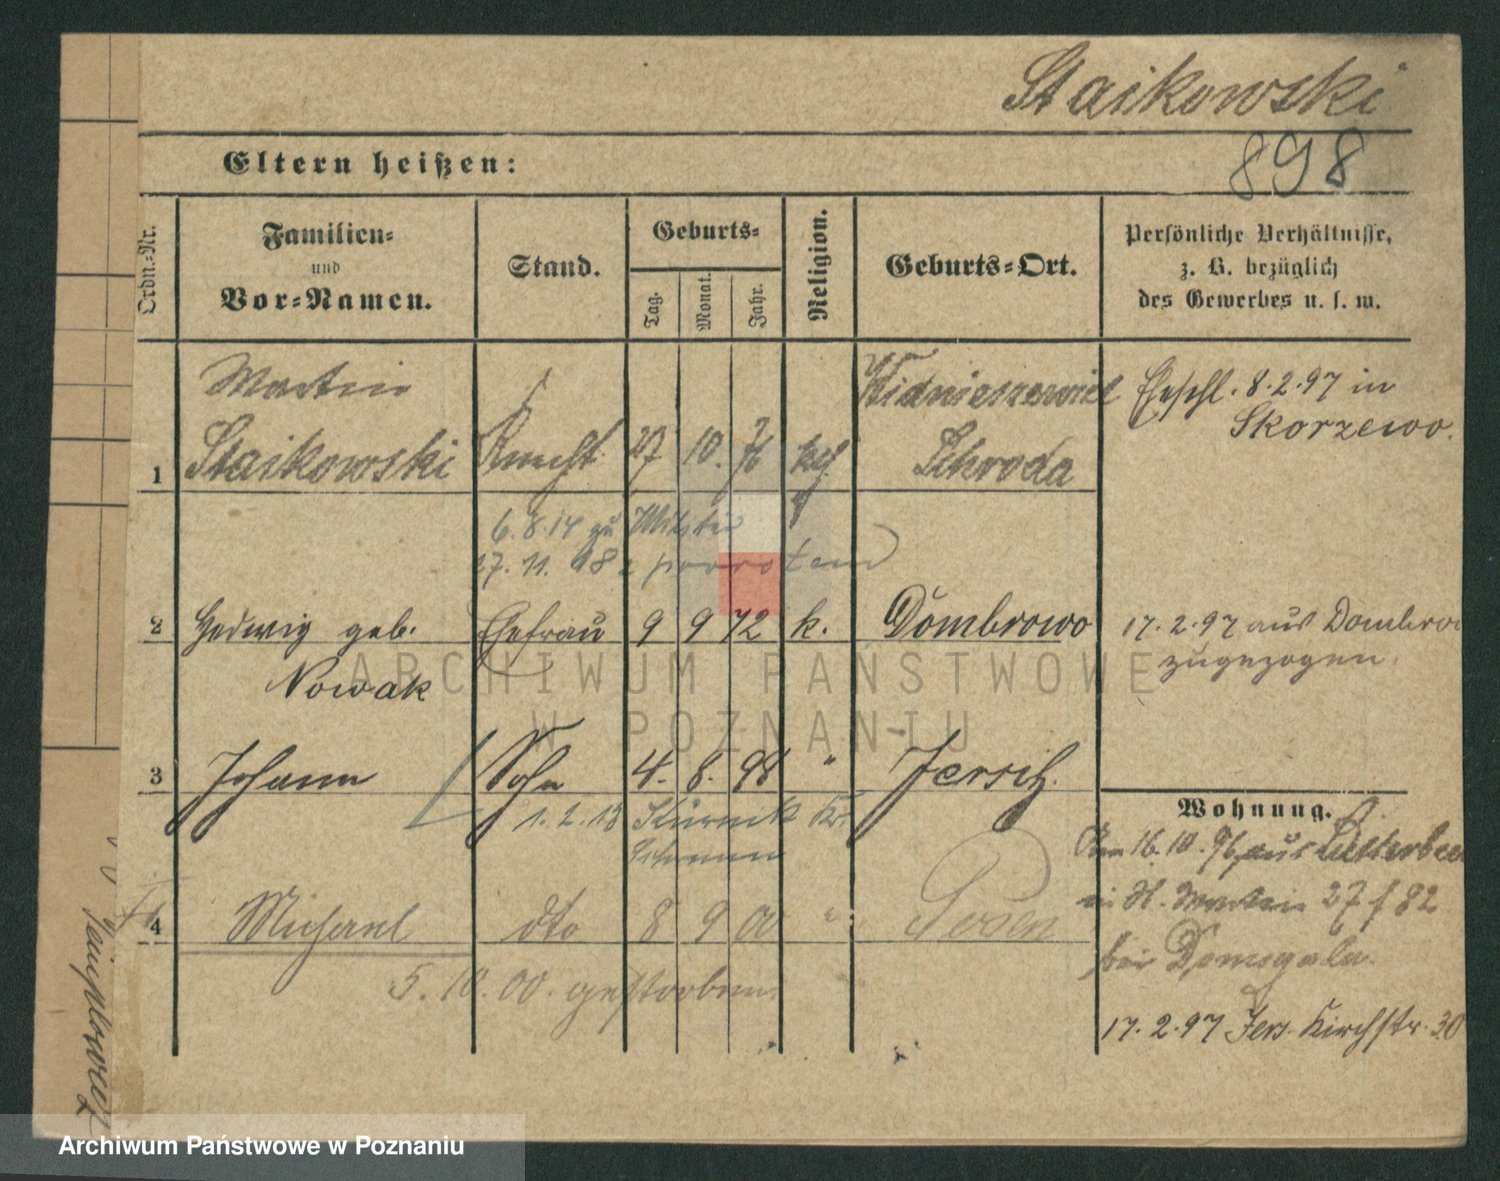 Staikowski
898
Eltern heißen:
Ordn.-Nr.
Familien-
und
Vor-Namen.
Stand.
Geburts-
Tag.
Monat.
Jahr.
Religion.
Geburts-Ort.
Persönliche Verhältnisse,
z. B. bezüglich
des Gewerbes u. s. w.
Martin
Staikowski
1
Knecht
27 10. 76
kath.
Schroda
Eheschl. 8.2.97 in
Skorzewo.
6.8.14 zu Militär
27. 11. 98
2 Hedwig geb. Ehefrau 9 9 72 k. Dombrowo
Nowak
17.2.97 aus Dombrowo
zugezogen.
3 Johann Sohn 4. 8. 98 " Jersitz.
1. 2. 13 Kurnik Kr.
Schrimm
4 Michael dto 8 9 00 " Posen
5. 10. 00. gestorben.
Wohnung.
16.10.96 aus
in St. Martin 27 f 82
bei Domogala
17.2.97 Jers. Kirchstr. 30
ARCHIWUM PAŃSTWOWE
W POZNANIU
Archiwum Państwowe w Poznaniu